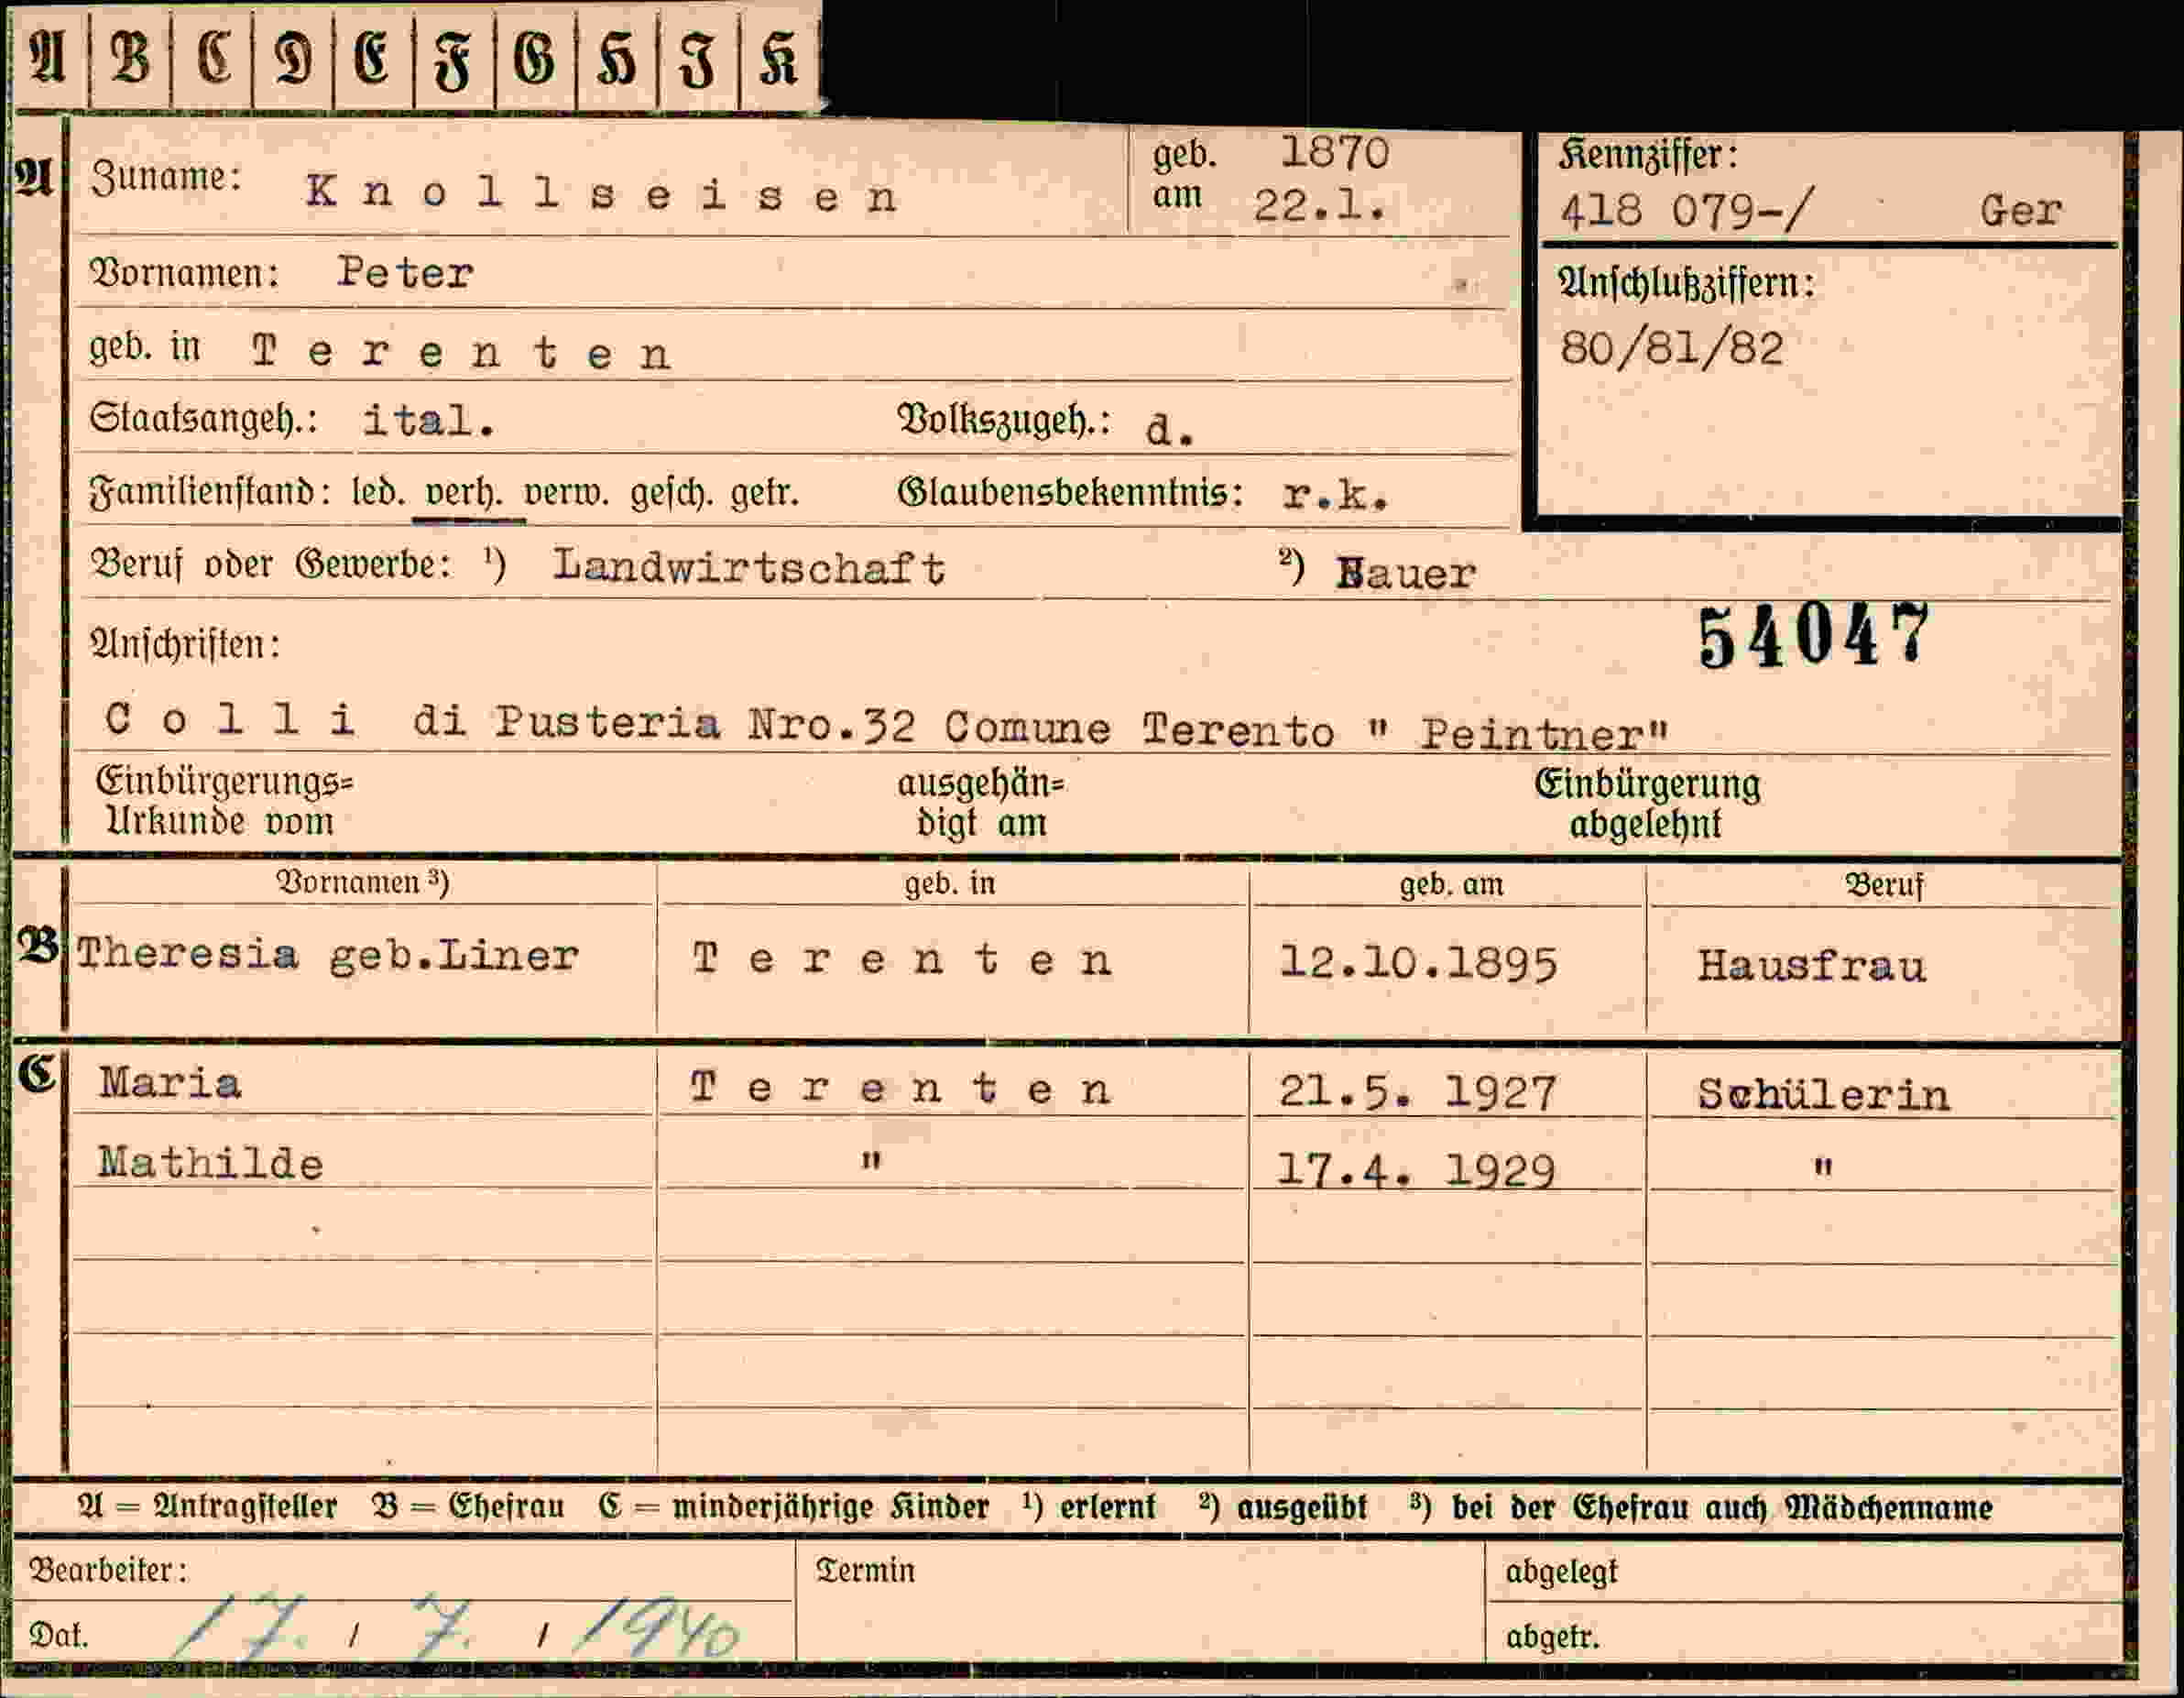 A B C D E F G H I K
A Zuname: Knollseisen geb. am 1870 22.1. Kennziffer:
418 079-/ Ger
Vornamen: Peter Anschlußziffern:
geb. in Terenten 80/81/82
Staatsangeh.: ital. Volkszugeh.: d.
Familienstand: led. verh. verw. gesch. getr. Glaubensbekenntnis: r.k.
Beruf oder Gewerbe: ¹) Landwirtschaft ²) Bauer
Anschriften: 54047
Colli di Pusteria Nro.32 Comune Terento " Peintner"
Einbürgerungs= ausgehän= Einbürgerung
Urkunde vom digt am abgelehnt
Vornamen ³) geb. in geb. am Beruf
B Theresia geb.Liner Terenten 12.10.1895 Hausfrau
C Maria Terenten 21.5. 1927 Schülerin
Mathilde " 17.4. 1929 "
A = Antragsteller B = Ehefrau C = minderjährige Kinder ¹) erlernt ²) ausgeübt ³) bei der Ehefrau auch Mädchenname
Bearbeiter: Termin abgelegt
Dat. 17. / 7. / 1940 abgetr.